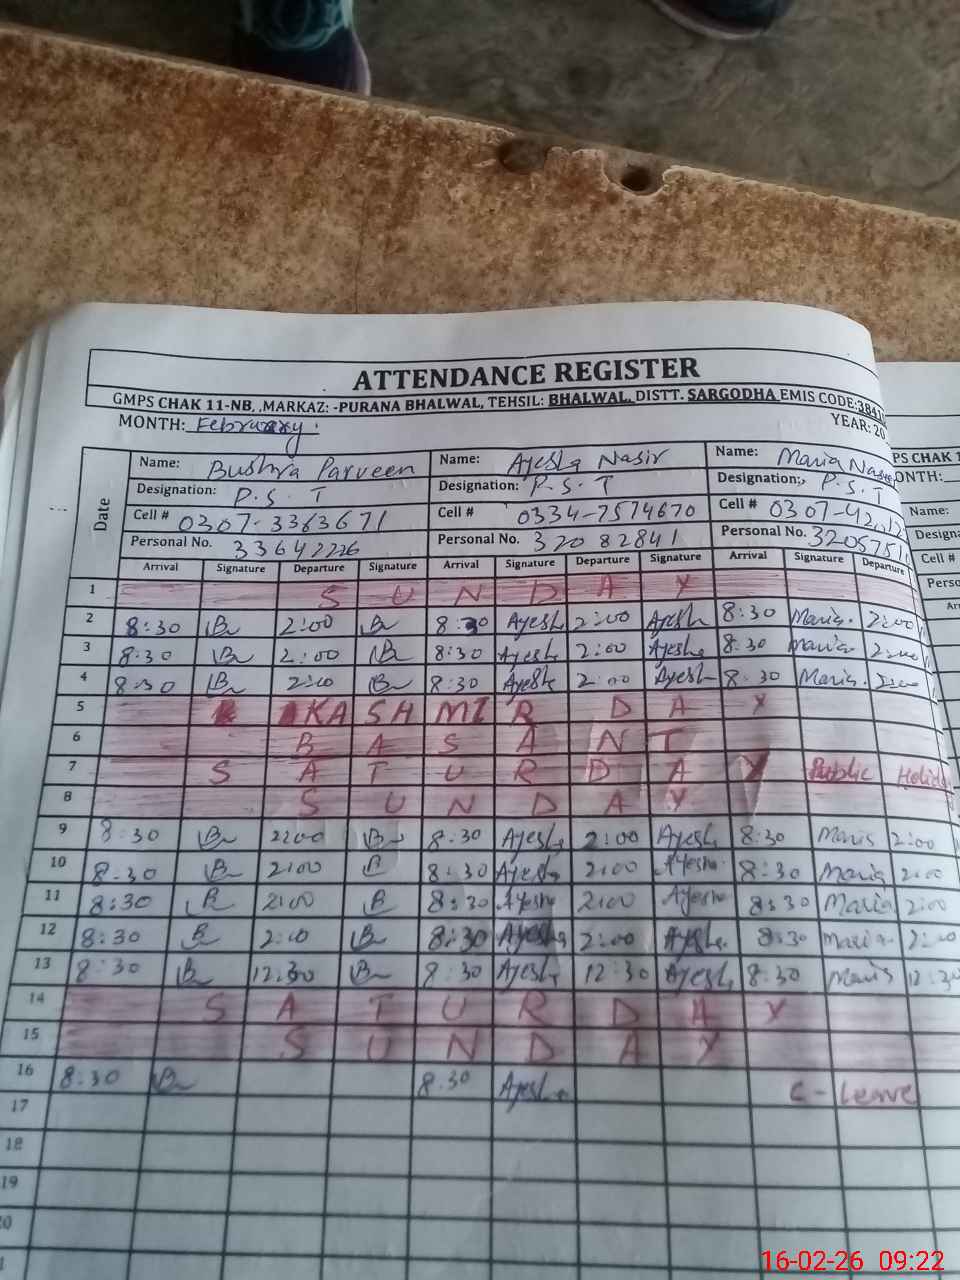 ATTENDANCE REGISTER
GMPS CHAK 11-NB, .MARKAZ: -PURANA BHALWAL, TEHSIL: BHALWAL, DISTT. SARGODHA EMIS CODE:3841
MONTH: February. YEAR: 20
PS CHAK 1
ONTH:
Date Name: Bushra Parveen Name: Ayesha Nasir Name: Maria Nasir Name:
Designation: P.S.T Designation: P.S.T Designation:, P.S.T Designa
Cell # 0307-3363671 Cell # 0334-7574670 Cell # 0307-42 Cell #
Personal No. 33642226 Personal No. 32082841 Personal No. 3205751 Perso
Arrival Signature Departure Signature Arrival Signature Departure Signature Arrival Signature Departure Arr
1 S U N D A Y
2 8:30 B 2:00 B 8:30 Ayesha 2:00 Ayesha 8:30 Maria. 2:00
3 8:30 B 2:00 B 8:30 Ayesha 2:00 Ayesha 8:30 Maria 2:00
4 8:30 B 2:00 B 8:30 Ayesha 2:00 Ayesha 8:30 Maria. 2:00
5 KASHMIR DAY
6 B A S A N T
7 S A T U R D A Y Public Holida
8 S U N D A Y
9 8:30 B 2:00 B 8:30 Ayesha 2:00 Ayesha 8:30 Maria 2:00
10 8:30 B 2:00 B 8:30 Ayesha 2:00 Ayesha 8:30 Maria 2:00
11 8:30 B 2:00 B 8:30 Ayesha 2:00 Ayesha 8:30 Maria 2:00
12 8:30 B 2:00 B 8:30 Ayesha 2:00 Ayesha. 8:30 Maria 2:00
13 8:30 B 12:30 B 8:30 Ayesha 12:30 Ayesha 8:30 Maria 12:30
14 S A T U R D A Y
15 S U N D A Y
16 8:30 B 8:30 Ayesha C - Leave
17
18
19
20
16-02-26 09:22